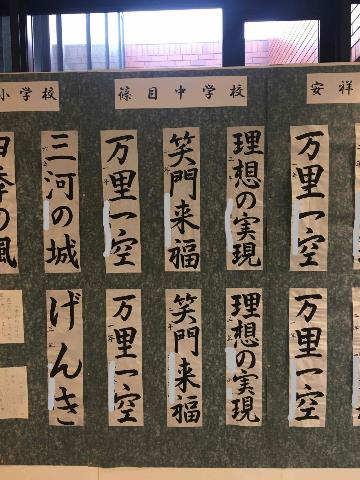 小学校
篠目中学校
安祥
四季の風
三河の城
万里一空
笑門来福
理想の実現
万里一空
げんき
万里一空
笑門来福
理想の実現
万里一空